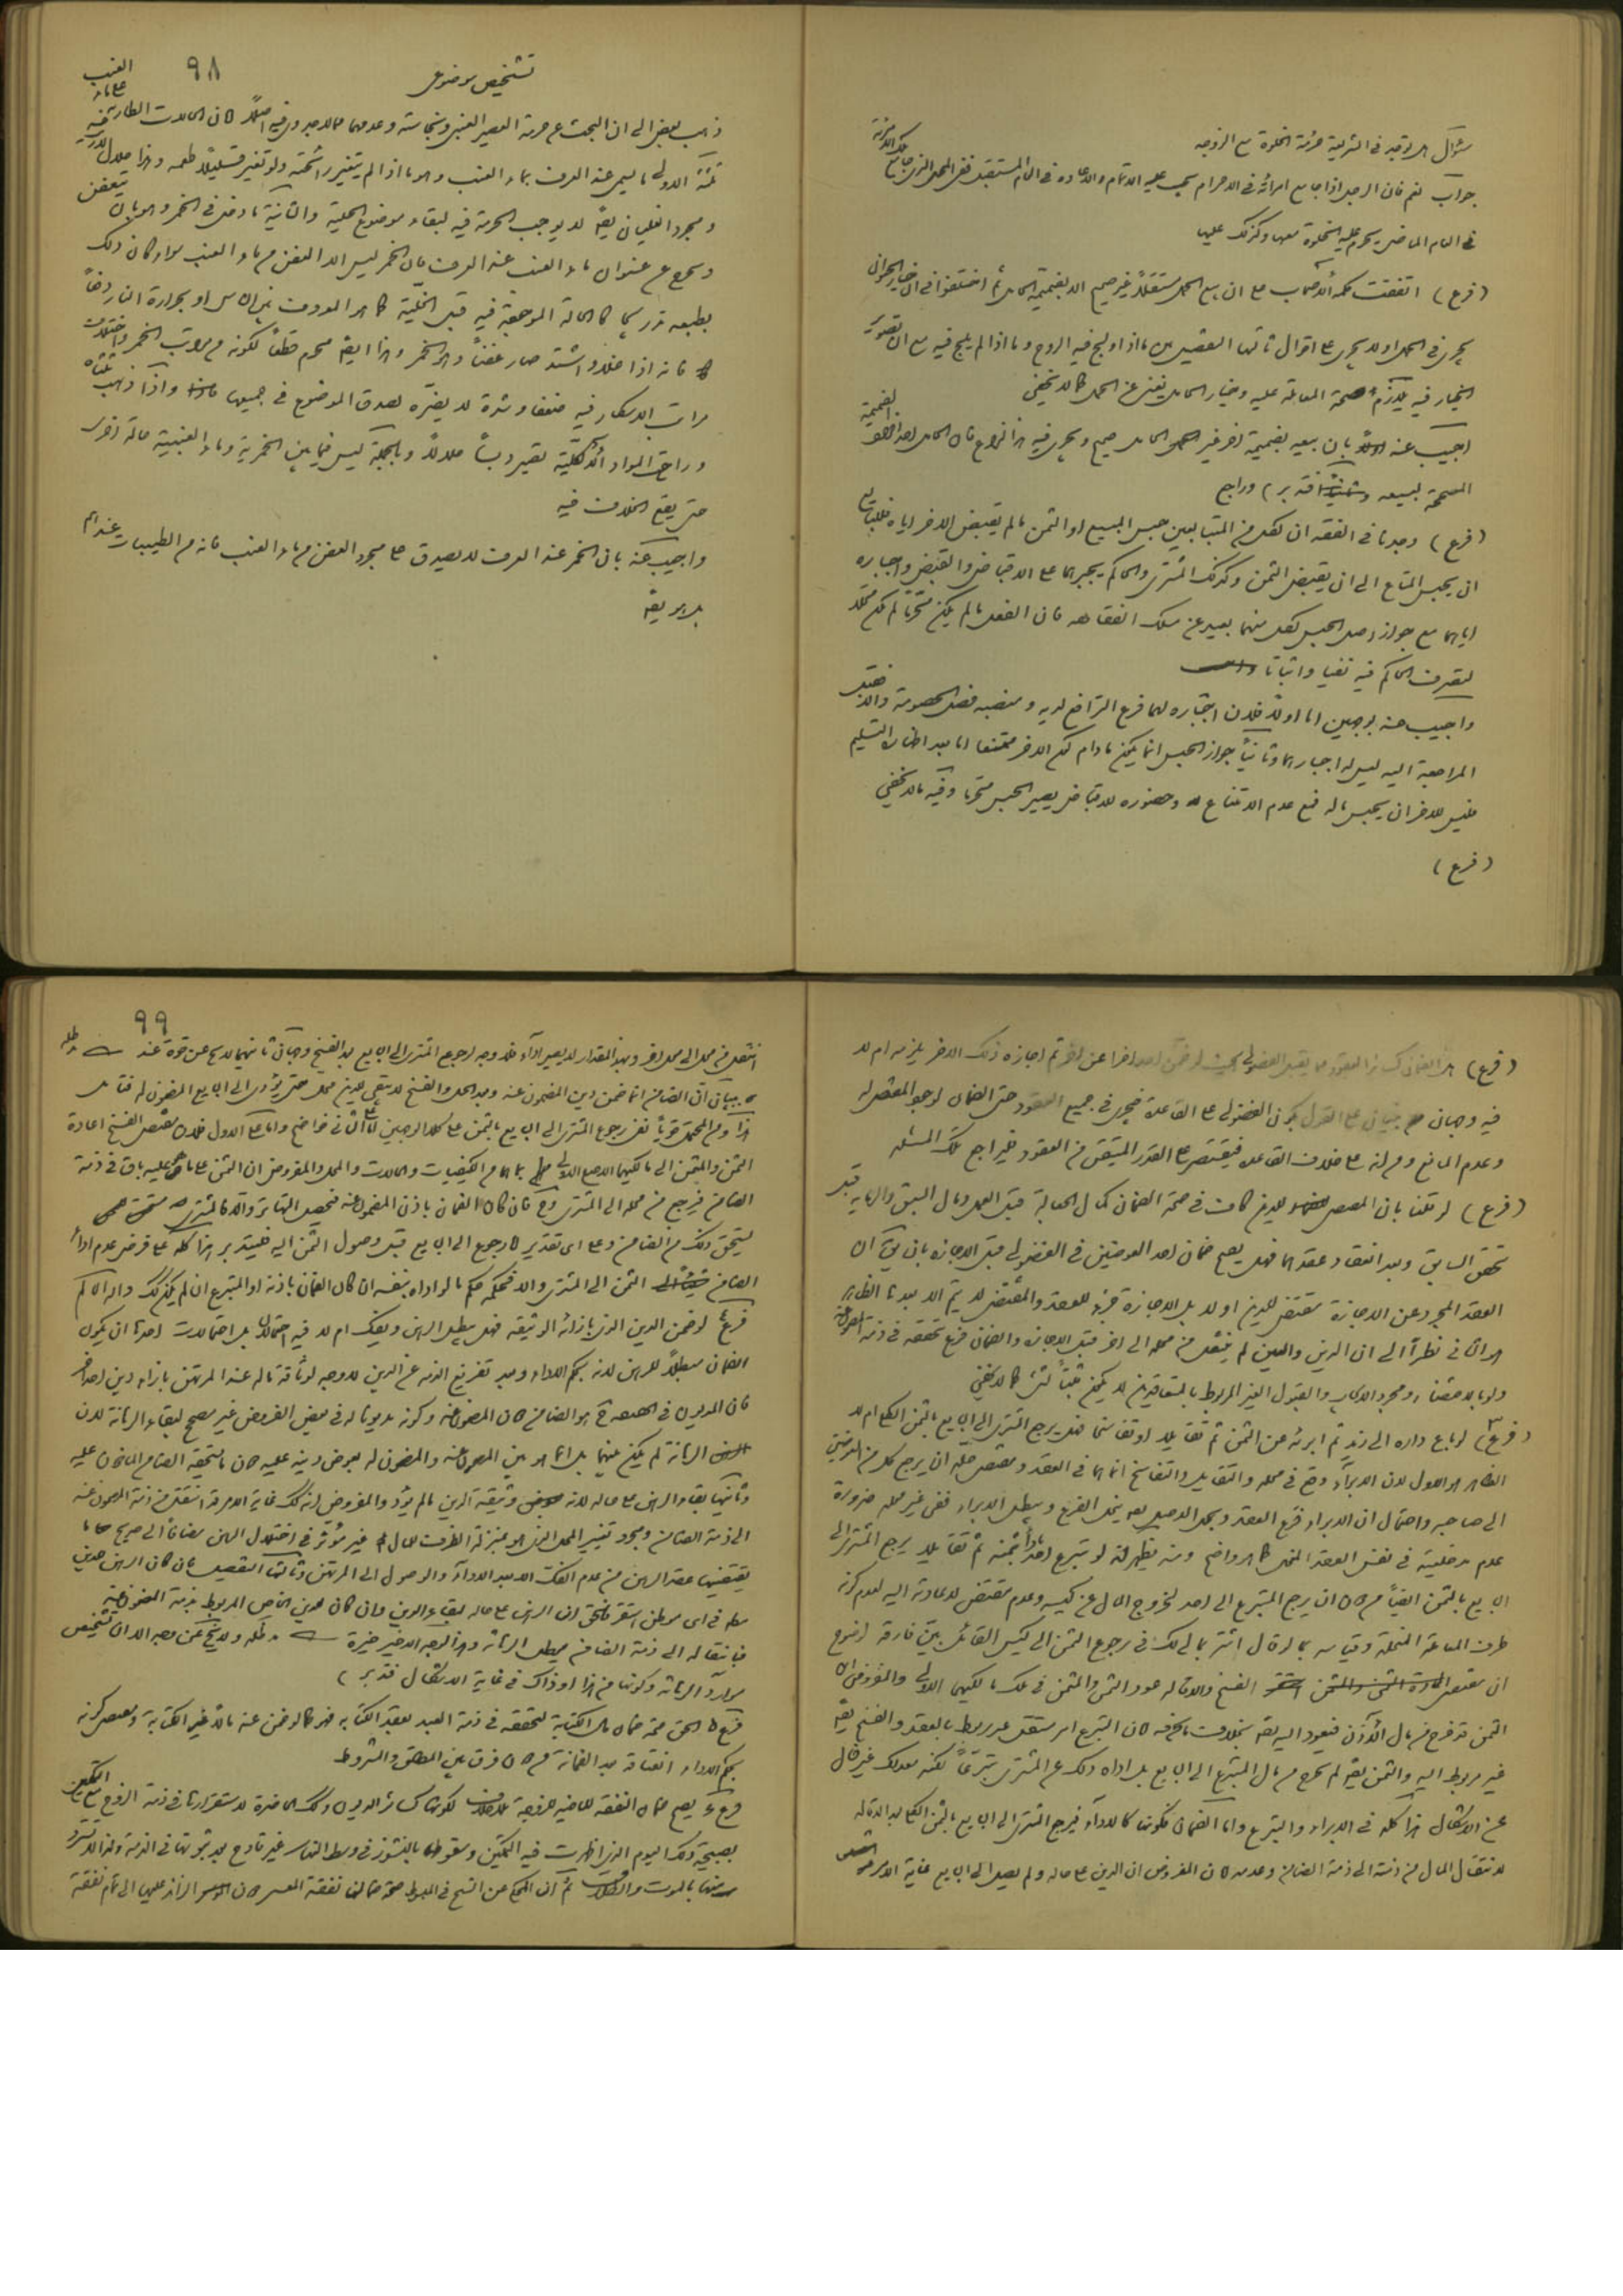 سؤال هل توجد فى الشريعة حرمة الخلوة مع الزوجه
جواب نعم فان الرجل اذا جامع امرأته فى الاحرام يجب عليه الاتمام والاعادة فى العام المستقبل ففى المحل الذى جامع
فى العام الماضى يحرم عليه الخلوة معها وكذلك عليها
(فرع) اتفقت كلمة الأصحاب على ان بيع الحمل مستقلاً غير صحيح الا بضميمة الحامل ثم اختلفوا فى ان خيار الحيوان
يجرى فى الحمل او لا يجرى على اقوال ثالثها التفصيل بين ما اذا ولج فيه الروح وما اذا لم يلج فيه مع ان تصوير
الخيار فيه يلازم صحة المعاملة عليه وخيار الحامل يغنى عن الحمل كما لا يخفى
اجيب عنه بان بيعه بضميمة اخرى غير الحامل صحيح ويجرى فيه هذا النزاع فان الحامل احد
المصححة لبيعه فتدبر) وراجع
(فرع) وجدنا فى الفقه ان لكل من المتبايعين حبس المبيع او الثمن ما لم يقبض الاخر اياه فللبايع
ان يحبس المتاع الى ان يقبض الثمن وكذلك المشترى والحاكم يجبرهما على الاقباض والقبض واجباره
اياهما مع جواز اصل الحبس لكل منهما بعيد عن مسلك الفقاهه فان الفعل ما لم يكن محرّماً لم يكن محلا
لتصرف الحاكم فيه نفيا واثباتا
واجيب عنه بوجهين اما اولا فلان اجباره لهما فرع الترافع لديه ومنصبه فصل الخصومة والا فقبل
المراجعة اليه ليس له اجبارهما وثانياً جواز الحبس انما يكون ما دام كان الاخر ممتنعا اما بعد اظهاره التسليم
فليس للاخر ان يحبس ماله فمع عدم الامتناع وحضوره للاقباض يصير الحبس محرّما وفيه ما لا يخفى
(فرع)
٩٨
تشخيص موضوعى
ذهب بعض الى ان البحث عن حرمة العصير العنبى ونجاسته وعدمهما مما لا جدوى فيه اصلاً لان الحالات الطارية على ماء العنب
ثلثة الاولى ما ليس عند العرف بماء العنب وهو ما اذا لم يتغير رائحته ولو تغير قليلاً طعمه وهذا حلال
ومجرد الغليان يقه لا يوجب الحرمة فيه لبقاء موضوع الحلية والثانية ما دخل فى الخمر وهو بان يتعفن
ويخرج عن عنوان ماء العنب عند العرف فان الخمر ليس الا العفن من ماء العنب سواء كان ذلك
بطبعه تدريجا كالحالة الموجودة فيه قبل الخلّية كما هو المعروف بين الناس او بحرارة النار
فانه اذا غلا واشتد صار عفناً وهو الخمر وهذا ايضا محرم قطعاً لكونه من مراتب الخمر واختلاف
مراتب الاسكار فيه ضعفا وشدة لا يضرّه لصدق الموضوع فى جميعها واذا ذهب ثلثاه
وراحت المواد الكلية يصير دبساً حلالاً وبالجملة ليس فيما بين الخمرية وماء العنبية حالة اخرى
حتى يقع الخلاف فيه
واجيب عنه بان الخمر عند العرف لا يصدق على مجرد العفن من ماء العنب فانه من الطيبات عندهم
(فرع) هل الضمان كسائر العقود مما يقبل الفضولى بحيث لو ضمن احد اخرا عن اخر ثم اجازه ذلك الاخر يلزمه ام لا
فيه وجهان يبتنيان على القول بكون الفضولى على القاعدة فيجرى فى جميع العقود حتى الضمان لوجود المقتضى له
وعدم المانع ومن انه على خلاف القاعده فيقتصر على القدر المتيقن من العقود فيراجع تلك المسئله
(فرع) لو قلنا بان المقتضى للدين كافٍ فى صحة الضمان كمال الجعالة قبل العمل ومال السبق والرمايه قبل
تحقق السابق وبعد انعقاد عقدهما فهل يصح ضمان احد العوضين فى الفضولى قبل الاجازه بان يقال ان
العقد المجرد عن الاجازة مقتض للدين او لا بل الاجازة جزء للعقد والمقتضى لا يتم الا بعدها الظاهر
هو الثانى نظراً الى ان الدين والعين لم ينتقل من محله الى اخر قبل الاجازه والضمان فرع تحققه فى ذمة
ولو بالاقتضاء ومجرد الايجاب والقبول الغير المربوط بالمتعاقدين لا يكون مثبتاً لشئ كما لا يخفى
(فرع) لو باع داره الى زيد ثم ابرئه عن الثمن ثم تقايلا او تفاسخا فهل يرجع المشترى الى البايع بالثمن الكلى ام لا
الظاهر هو الاول لان الابراء وقع فى محله والتقايل والتفاسخ انما هما فى العقد ومقتضى حله ان يرجع كل من العوضين
الى صاحبه واحتمال ان الابراء فرع العقد وبحل الاصل ينحل الفرع ويبطل الابراء ففى غير محله ضرورة
عدم مدخليته فى نفس العقد المنحل كما هو واضح ومنه يظهر انه لو تبرع احد باداء ثمنه ثم تقايلا يرجع المشترى الى
البايع بالثمن ايضاً من دون ان يرجع المتبرع الى احد لخروج المال عن كيسه وعدم مقتض لاعادته اليه لعدم كونه
طرف المعاملة المنحلة وقياسه بما لو قال اشتر بمالى لك فى رجوع الثمن الى كيس القائل بيّن فارقه لوضوح
ان مقتضى الفسخ والاقاله عود الثمن والمثمن فى ملك مالكيهما الاولى والمفروض ان
الثمن قد خرج من مال الآذن فيعود اليه يقه بخلاف ما نحن فيه لان التبرع امر مستقل غير مربوط بالعقد والفسخ يقه
غير مربوط اليه والثمن يقه لم يخرج من مال المتبرع الى البايع بل اداه ذلك عن المشترى تبرّعاً لكنه مع ذلك غير خال
عن الاشكال هذا كله فى الابراء والتبرع واما الضمان فكونه كالاداء فيرجع المشترى الى البايع بالثمن الكلى بعد الاقاله
لانتقال المال من ذمته الى ذمة الضامن وعدمه لان المفروض ان الدين على حاله ولم يصل الى البايع غاية الامر
٩٩
انتقل من محل الى محل اخر وبهذا المقدار لا يصير اداء فلا وجه لرجوع المشترى الى البايع بعد الفسخ وجهان ثانيهما لا يخ عن قوة عند
بيان ان الضامن انما ضمن دين المضمون عنه وبعد الحل والفسخ لا يبقى للدين محل حتى يؤدى الى البايع المضمون له فتامل
هذا ومن المحتمل قوياً نفى رجوع المشترى الى البايع بالثمن على كلا الوجهين اما على الثانى فواضح واما على الاول فلان مقتضى الفسخ اعادة
الثمن والمثمن الى مالكيهما الاصلى الاولى بما لهما من الكيفيات والحالات والمحل والمفروض ان الثمن على ما هو عليه باق فى ذمة
الضامن فيرجع من محله الى المشترى وح فان كان الضمان باذن المضمون عنه فيحصل التهاتر والا فالمشترى
يستحق ذلك من الضامن وعلى اى تقدير لا رجوع الى البايع قبل وصول الثمن اليه فليتدبر هذا كله على فرض عدم اداء
الضامن الثمن الى المشترى والا فحكمه حكم ما لو اداه بنفسه ان كان الضمان باذنه او المتبرع ان لم يكن كذلك والله الحاكم
فرع لو ضمن الدين الذى بازائه الوثيقه فهل يبطل الرهن ويفك ام لا فيه احتمالان بل احتمالات احدها ان يكون
الضمان مبطلا للرهن لانه بحكم الاداء وبعد تفريغ الذمه عن الدين لا وجه لوثاقة ماله عند المرتهن بازاء دين احد اخر
فان المديون فى الحقيقه ح هو الضامن لان المضمون عنه وكونه مديونا له فى بعض الفروض غير مصحح لبقاء الرهانة لان
الرهانة لم يكن بينهما بل انما هو بين المضمون عنه والمضمون له بعوض دينه عليه لان ما يستحقه الضامن الخارج عليه
وثانيها بقاء الرهن على حاله لانه وثيقة الدين ما لم يؤد والمفروض انه كذلك غاية الامر قد انتقل من ذمة المضمون عنه
الى ذمة الضامن ومجرد تغيير المحل الذى هو بمنزلة الظرف للمال غير مؤثر فى اختلال الرهن مضافاً الى صريح ما
يقتضيها عقد الرهن من عدم الفك الا بعد الاداء والوصول الى المرتهن وثالثها التفصيل بان كان الرهن للدين
مطلقا فى اى موطن استقر فالحق ان الرهن على حاله لبقاء الدين وان كان للدين الخاص المربوط بذمة المضمون عنه
فبانتقاله الى ذمة الضامن يبطل الرهانه وهذا الوجه الاخير خيرة ولا يخ عن وجه الا ان تشخيص
موارد الرهانه وكونها من هذا او ذاك فى غاية الاشكال فتدبر)
فرع الحق صحة ضمان مال الكتابة لتحققه فى ذمة العبد بعقد الكتابه فهو كما لو ضمن عنه مالاً غير الكتابة ومقتضى كونه
بحكم الاداء انعتاقه بعد الضمانه من دون فرق بين المطلق والمشروط
فرع يصح ضمان النفقه الماضيه للزوجة لكونها كسائر الديون وكذلك الحاضرة لاستقرارها فى ذمة الزوج مع التمكين
بصبيحة ذلك اليوم الذى اظهرت فيه التمكين وسقوطها بالنشوز فى وسط النهار غير قادح بعد ثبوتها فى الذمة ولذا لا تسترد
منها بالموت والطلاق ثم ان المحكى عن الشيخ فى المبسوط صحة ضمانها نفقة المعسر لان الزائد عليها الى تمام نفقة